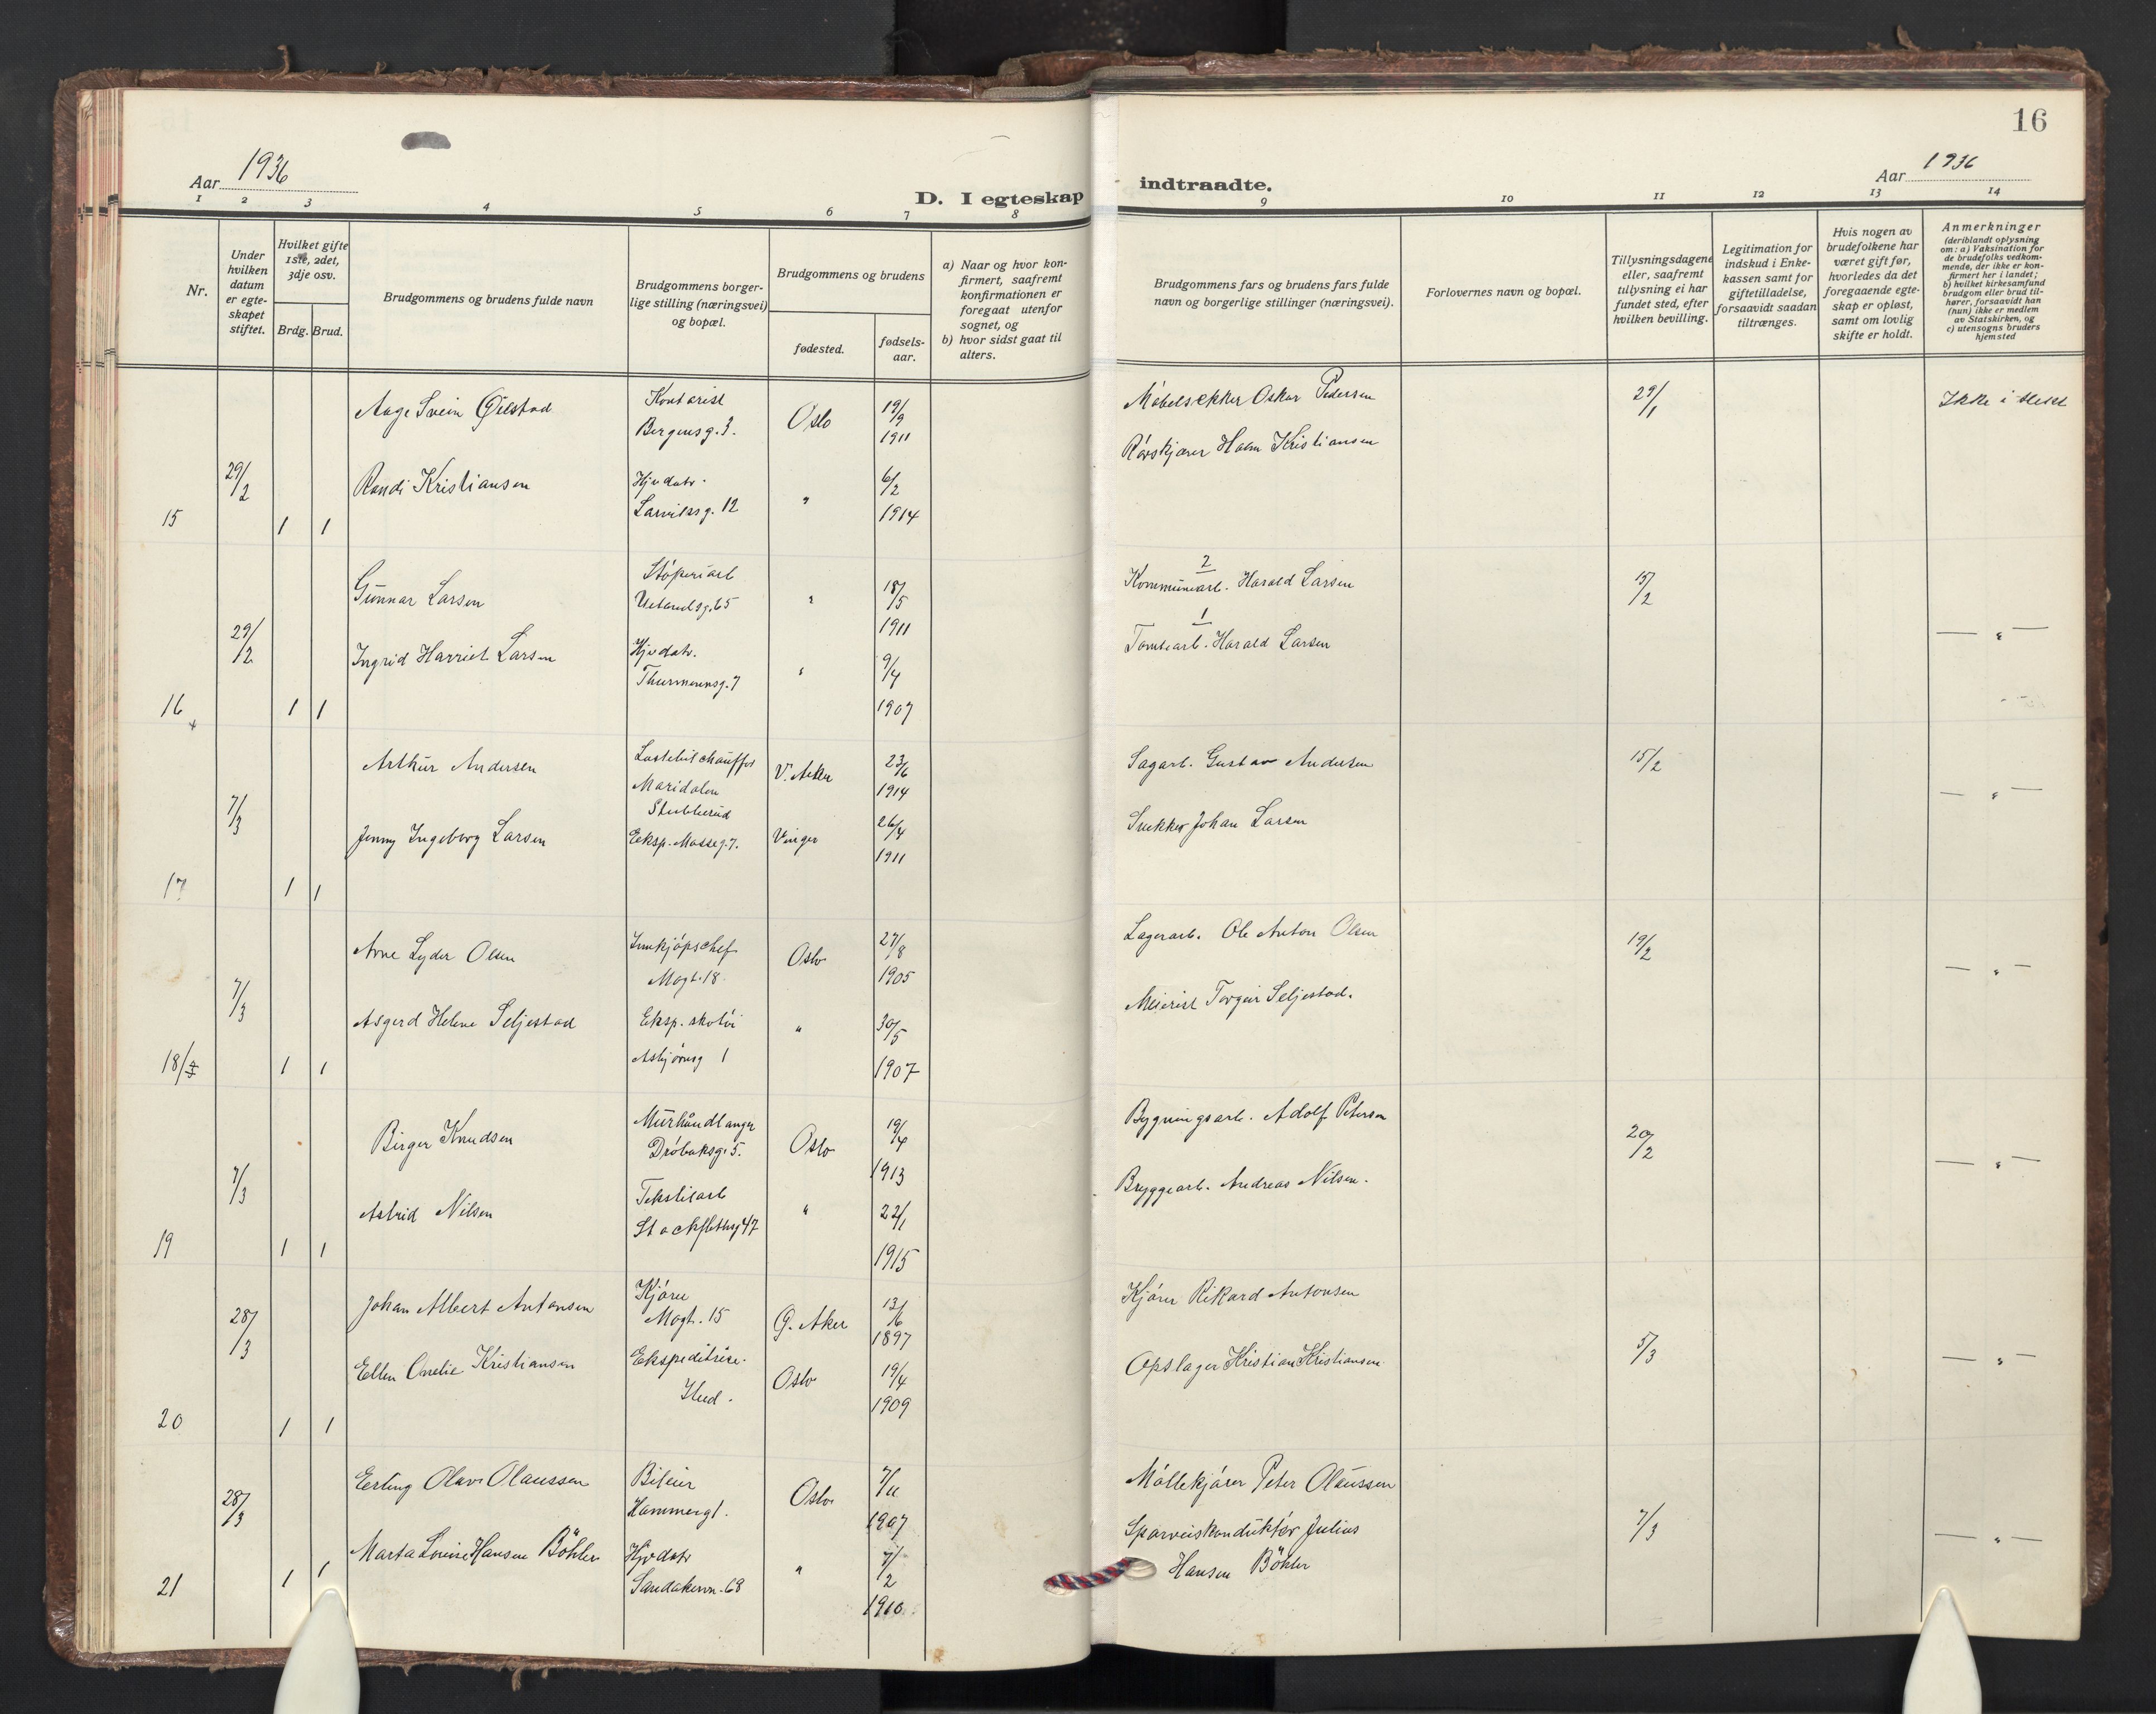 16
Aar 1936
D. I egteskap indtraadte.
Aar 1936
1 2 3 4 5 6 7 8 9 10 11 12 13 14
Nr.
Under hvilken datum er egteskapet stiftet.
Hvilket gifte 1ste, 2det, 3dje osv.
Brdg. Brud.
Brudgommens og brudens fulde navn
Brudgommens borgerlige stilling (næringsvei) og bopæl.
Brudgommens og brudens
fødested.
fødselsaar.
a) Naar og hvor konfirmert, saafremt konfirmationen er foregaat utenfor sognet, og
b) hvor sidst gaat til alters.
Brudgommens fars og brudens fars fulde navn og borgerlige stillinger (næringsvei).
Forlovernes navn og bopæl.
Tillysningsdagene eller, saafremt tillysning ei har fundet sted, efter hvilken bevilling.
Legitimation for indskud i Enkekassen samt for giftetilladelse, forsaavidt saadan tiltrænges.
Hvis nogen av brudefolkene har været gift før, hvorledes da det foregaaende egteskap er opløst, samt om lovlig skifte er holdt.
Anmerkninger
(deriblandt oplysning om: a) Vaksination for de brudefolks vedkommende, der ikke er konfirmert her i landet; b) hvilket kirkesamfund brudgom eller brud tilhører, forsaavidt han (hun) ikke er medlem av Statskirken, og c) utensogns bruders hjemsted
Aage Svein Gjelstad Kontorist Oslo 19/9 1911
Bergensg. 3.
Oskar Pedersen 29/1 Ikke i slekt
29/2 Randi Kristiansen Hjv datr. " 6/2 1914
Larviksg. 12
Kristiansen
15 1 1
Gunnar Larsen Støperiarb " 18/5 1911
65
2
Kommunearb. Harald Larsen 15/2
29/2 Ingrid Harriet Larsen Hjv datr. " 9/4 1907
Thurmannsg. 7
1
Tomtearb. Harald Larsen — " —
16 1 1
Arthur Andersen Lastebilchauffør V. Aker 23/6 1914
Maridalen
Stubberud
Sagarb. Gustav Andersen 15/2 — " —
7/3 Jenny Ingeborg Larsen Eksp. Vinger 26/4 1911
Snekker Johan Larsen
17 1 1
Arne Lyder Olsen Innkjøpschef Oslo 27/8 1905
Mogt. 18.
Lagerarb. Ole Anton Olsen 19/2 — " —
7/3 Asgerd Helene Seljestad Eksp. skotøi " 30/5 1907
Asbjørnsg 1
Meierist Torgeir Seljestad.
18 1 1
Birger Knudsen Murhåndlanger Oslo 19/4 1913
Drøbaksg. 5.
Bygningsarb. Adolf Petersen 20/2
7/3 Astrid Nilsen Tekstilarb " 22/1 1915
Stockflethsg 47
Bryggearb. Andreas Nilsen. — " —
19 1 1
Johan Albert Antonsen Kjører Ø. Aker 13/6 1897
Mogt. 15
Kjører Rikard Antonsen
28/3 Ellen Amelie Kristiansen Ekspeditrise. Oslo 19/4 1909
Opslager Kristian Kristiansen. 5/3 — " —
20 1 1
Erling Olav Olaussen Bileier Oslo 7/11 1907
Hammergt.
Møllekjører Peter Olaussen
28/3 Marta Louise Hansen Böhler Hjv datr " 7/2 1910
Sandakervn. 68
Sporveiskonduktør Julius 7/3 — " —
Hansen Böhler
21 1 1